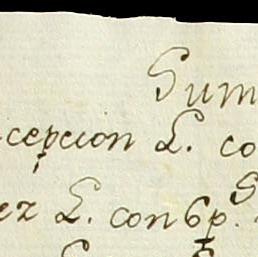 Sum
cepcion L. co
ez L. con 6p. S